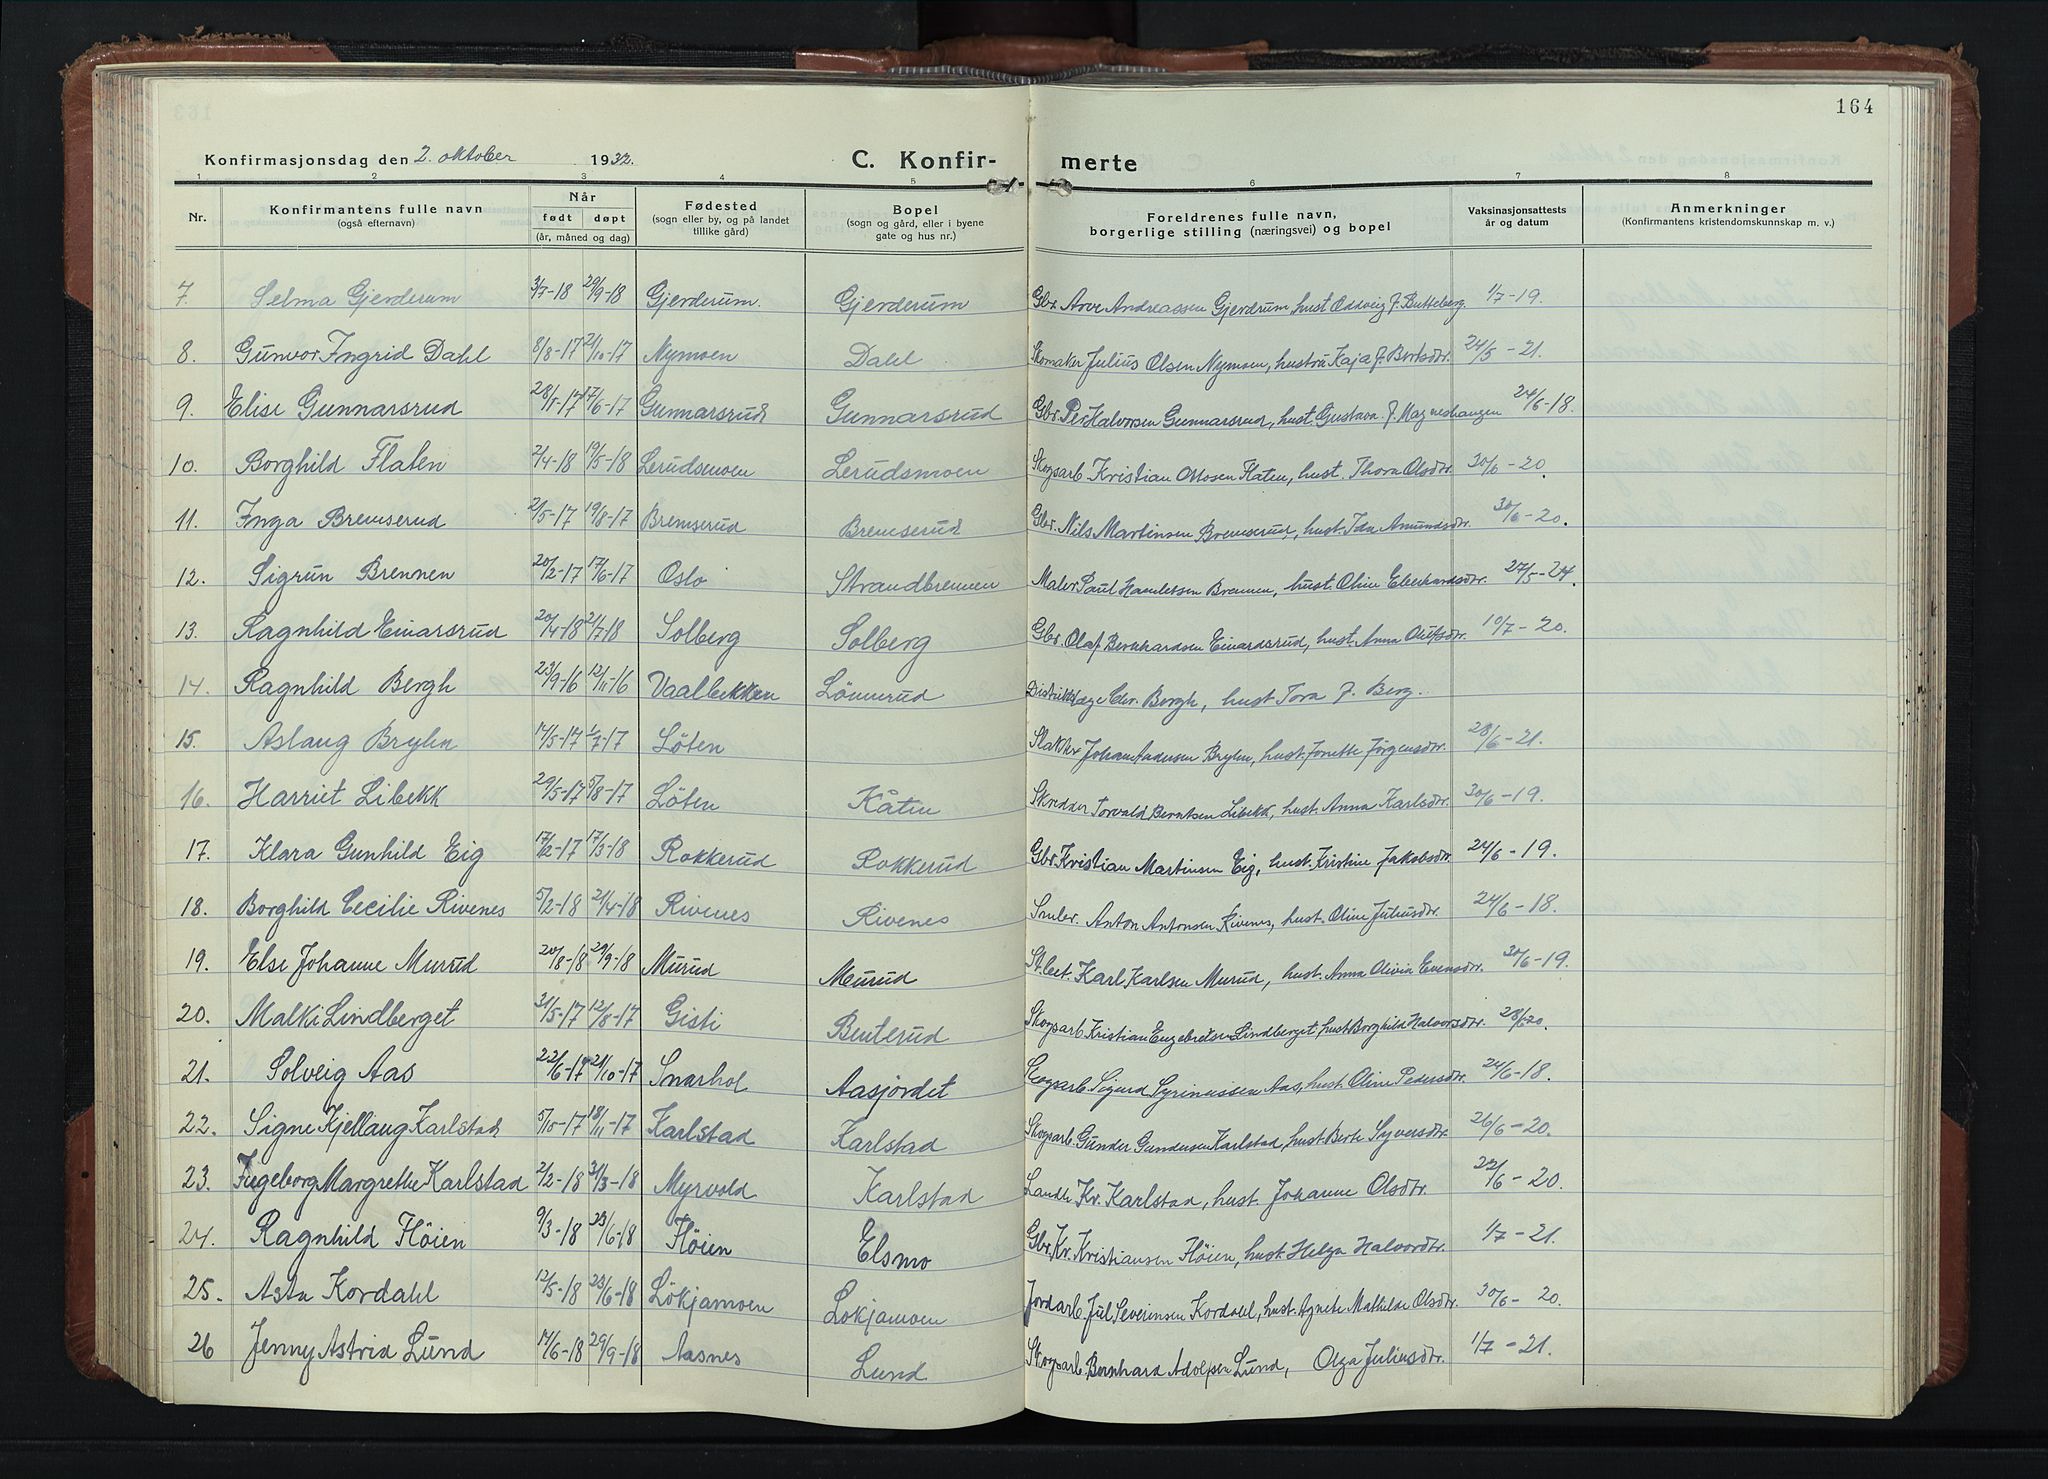 164
Konfirmasjonsdag den 2. oktober 1932. C. Konfir- merte
1 2 3 4 5 6 7 8
Nr. Konfirmantens fulle navn (også efternavn) Når født døpt (år, måned og dag) Fødested (sogn eller by, og på landet tillike gård) Bopel (sogn og gård, eller i byene gate og hus nr.) Foreldrenes fulle navn, borgerlige stilling (næringsvei) og bopel Vaksinasjonsattests år og datum Anmerkninger (Konfirmantens kristendomskunnskap m. v.)
7. Selma Gjerderum 3/7-18 29/9-18 Gjerderum. Gjerderum Gbr. Arve Andreassen Gjerdrum, hust Oddveig f. Butteberg 1/7-19.
8. Gunvor Ingrid Dahl 8/8-17 21/10-17 Nymoen Dahl Skomaker Julius Olsen Nymoen, hustru Kaja f. Berntsdtr. 24/5-21.
9. Elise Gunnarsrud 28/1-17 17/6-17 Gunnarsrud Gunnarsrud Gbr. Per Halvorsen Gunnarsrud, hust. Gustava f. Magneshaugen 24/6-18.
10. Borghild Flaten 2/4-18 19/5-18 Lerudsmoen Lerudsmoen Skogsarb. Kristian Ottosen Flaten, hust. Thora Olsdtr. 30/6-20.
11. Inga Bremserud 2/5-17 19/8-17 Bremserud Bremserud Gbr. Nils Martinsen Bremserud, hust. Ida Amundsdtr. 30/6-20.
12. Sigrun Brennen 20/2-17 17/6-17 Oslo Strandbrennen Maler Paul Hamletsen Brennen, hust. Oline Eberhardsdtr. 27/5-24.
13. Ragnhild Einarsrud 20/4-18 21/7-18 Solberg Solberg Gbr. Olaf Bernhardsen Einardsrud, hust. Anna Olufsdtr. 10/7-20.
14. Ragnhild Bergh 23/9-16 12/11-16 Vaalbekken Lömerud Distriktslæge Chr. Bergh, hust Tora f. Berg.
15. Aslaug Bryhn 14/5-17 1/7-17 Löten Slakter Johan Andersen Bryhn, hust. Jonette Jörgensdtr. 28/6-21.
16. Harriet Libekk 29/5-17 5/8-17 Löten Kåten Skredder Torvald Berntsen Libekk, hust. Anna Karlsdtr. 30/6-19.
17. Klara Gunhild Eig 17/12-17 17/3-18 Rokkerud Rokkerud Gbr. Kristian Martinsen Eig, hust. Kristine Jakobsdtr. 24/6-19.
18. Borghild Cecilie Rivenes 5/2-18 21/4-18 Rivenes Rivenes Smbr. Anton Antonsen Rivenes, hust. Oline Juliusdtr. 24/6-18.
19. Else Johanne Murud 20/8-18 29/9-18 Murud Murud St.bet. Karl Karlsen Murud, hust. Anna Olivia Evensdtr. 30/6-19.
20. Malki Lindberget 31/5-17 12/8-17 Gisti Benterud Skogsarb. Kristian Engebretsen Lindberget, hust Borghild Halvorsdtr. 28/6-20.
21. Solveig Aas 22/6-17 21/10-17 Snarhol Aasjordet Skogsarb. Sigurd Syrinussen Aas, hust. Oline Pedersdtr. 24/6-18.
22. Signe Kjellaug Karlstad 5/10-17 18/11-17 Karlstad Karlstad Skogsarb. Gunder Gundersen Karlstad, hust Berte Syversdtr. 26/6-20.
23. Ingeborg Margrethe Karlstad 2/2-18 31/3-18 Myrvold Karlstad Landh. Kr. Karlstad, hust. Johanne Olsdtr. 22/6-20.
24. Ragnhild Höien 9/3-18 23/6-18 Höien Elsmo Gbr. Kr. Kristiansen Höien, hust. Helga Halvordtr. 1/7-21.
25. Asta Kordahl 12/5-18 23/6-18 Lökjamoen Lökjamoen Jordarb. Jul Severinsen Kordahl, hust. Agnete Mathilde Olsdtr. 30/6-20.
26 Jenny Astrid Lund 14/6-18 29/9-18 Aasnes Lund Skogsarb. Bernhard Adolfsen Lund, Olga Juliusdtr. 1/7-21.